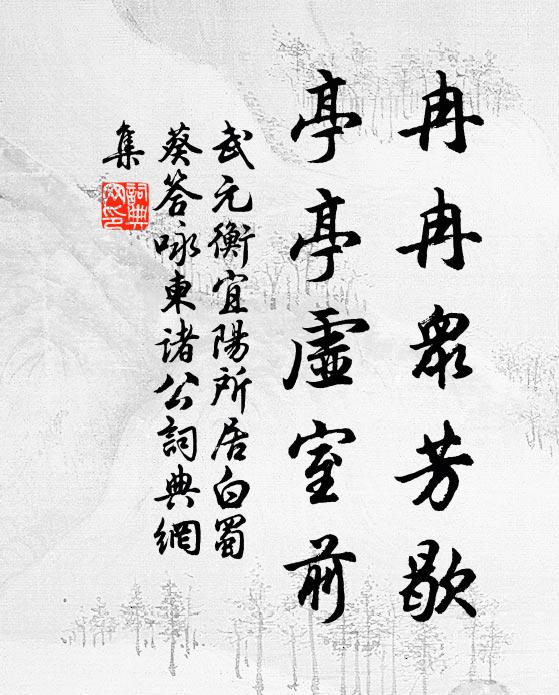 冉冉眾芳歇
亭亭虛室前
武元衡宜陽所居白蜀
葵答咏東諸公詞典網
集